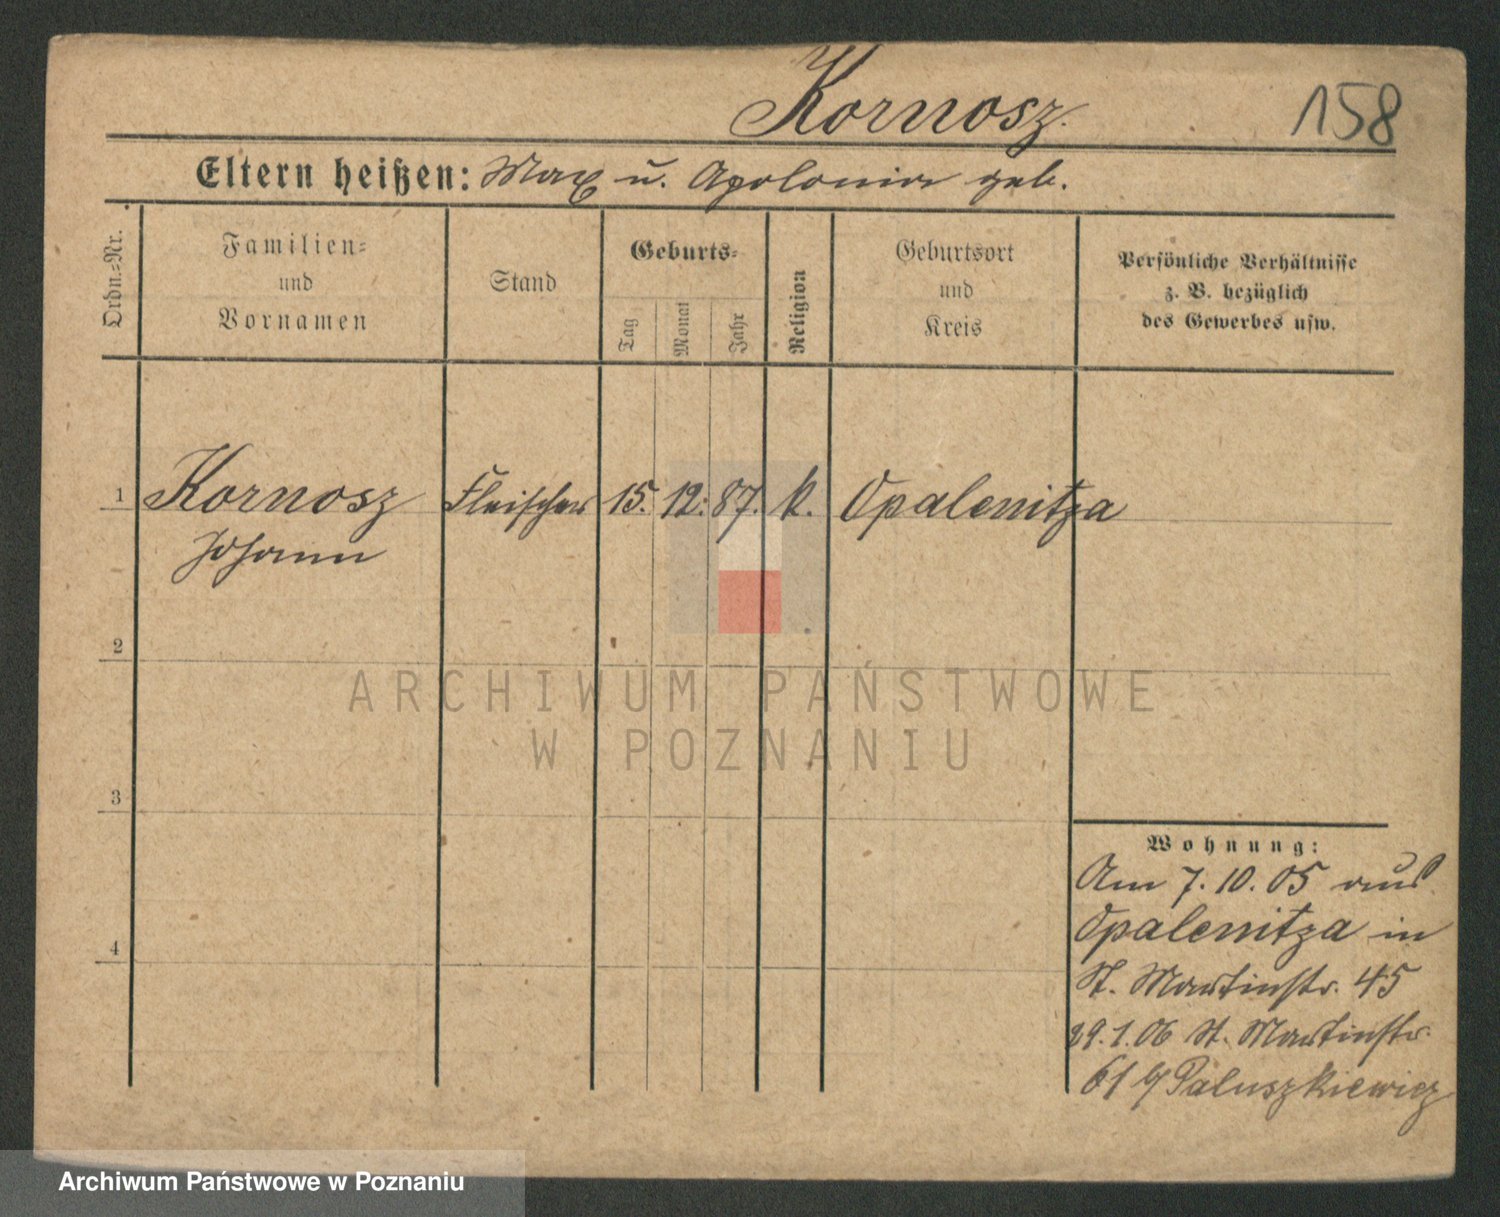 Kornosz.
158
Eltern heißen: Max u. Apolonia geb.
Ordn.=Nr.
Familien=
und
Vornamen
Stand
Geburts=
Tag
Monat
Jahr
Religion
Geburtsort
und
Kreis
Persönliche Verhältnisse
z. B. bezüglich
des Gewerbes usw.
1 Kornosz Fleischer 15. 12. 87. k. Opalenitza
Johann
2
3
4
Wohnung:
Am 7. 10. 05 aus
Opalenitza in
St. Martinstr. 45
29. 1. 06 St. Martinstr.
61 Paluszkiewicz
ARCHIWUM PAŃSTWOWE
W POZNANIU
Archiwum Państwowe w Poznaniu